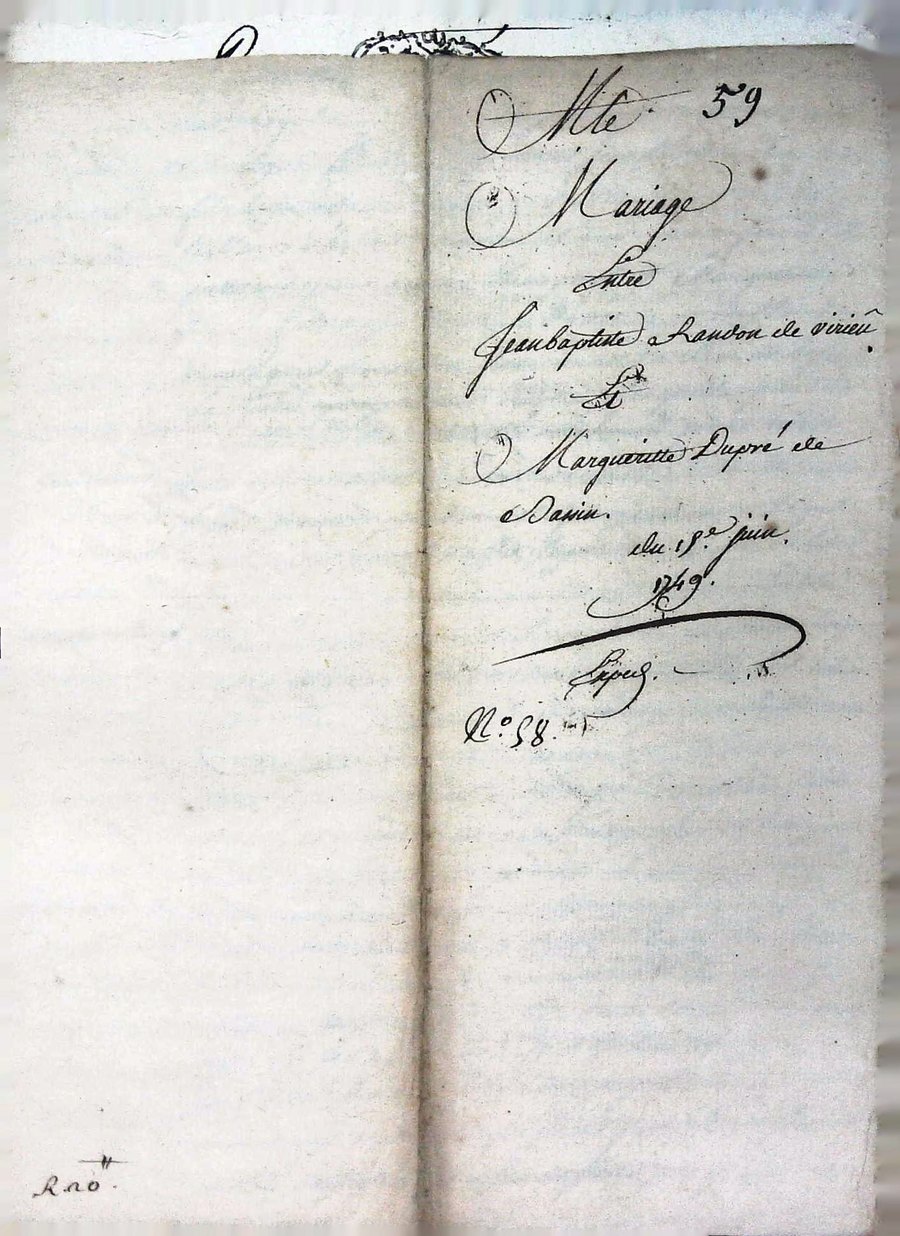 Mte. 59
Mariage
Entre
Jeanbaptiste Randon de virieu
Et
Margueritte Dupré de
du 15.e juin.
1749.
Exped.
N.o 58.